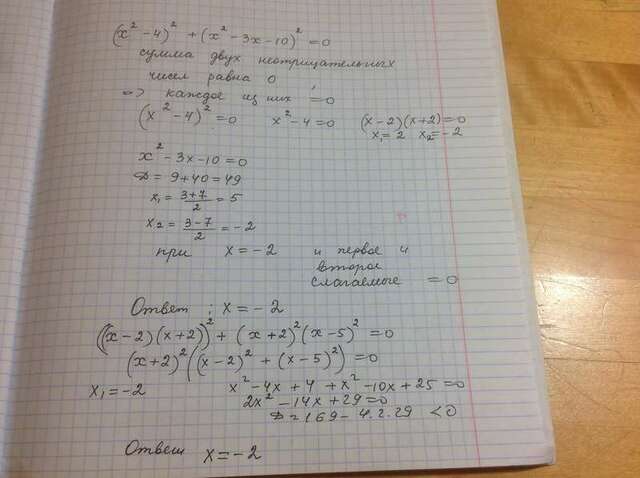 (x² - 4)² + (x² - 3x - 10)² = 0
сумма двух неотрицательных
чисел равна 0
=> каждое из них = 0
(x² - 4)² = 0 x² - 4 = 0 (x - 2)(x + 2) = 0
x₁ = 2 x₂ = -2
x² - 3x - 10 = 0
D = 9 + 40 = 49
x₁ = (3+7)/2 = 5
x₂ = (3-7)/2 = -2
при x = -2 и первое и
второе
слагаемые = 0
Ответ : x = -2
((x - 2)(x + 2))² + (x + 2)²(x - 5)² = 0
(x + 2)²((x - 2)² + (x - 5)²) = 0
x₁ = -2 x² - 4x + 4 + x² - 10x + 25 = 0
2x² - 14x + 29 = 0
D = 169 - 4.2.29 < 0
Ответ x = -2